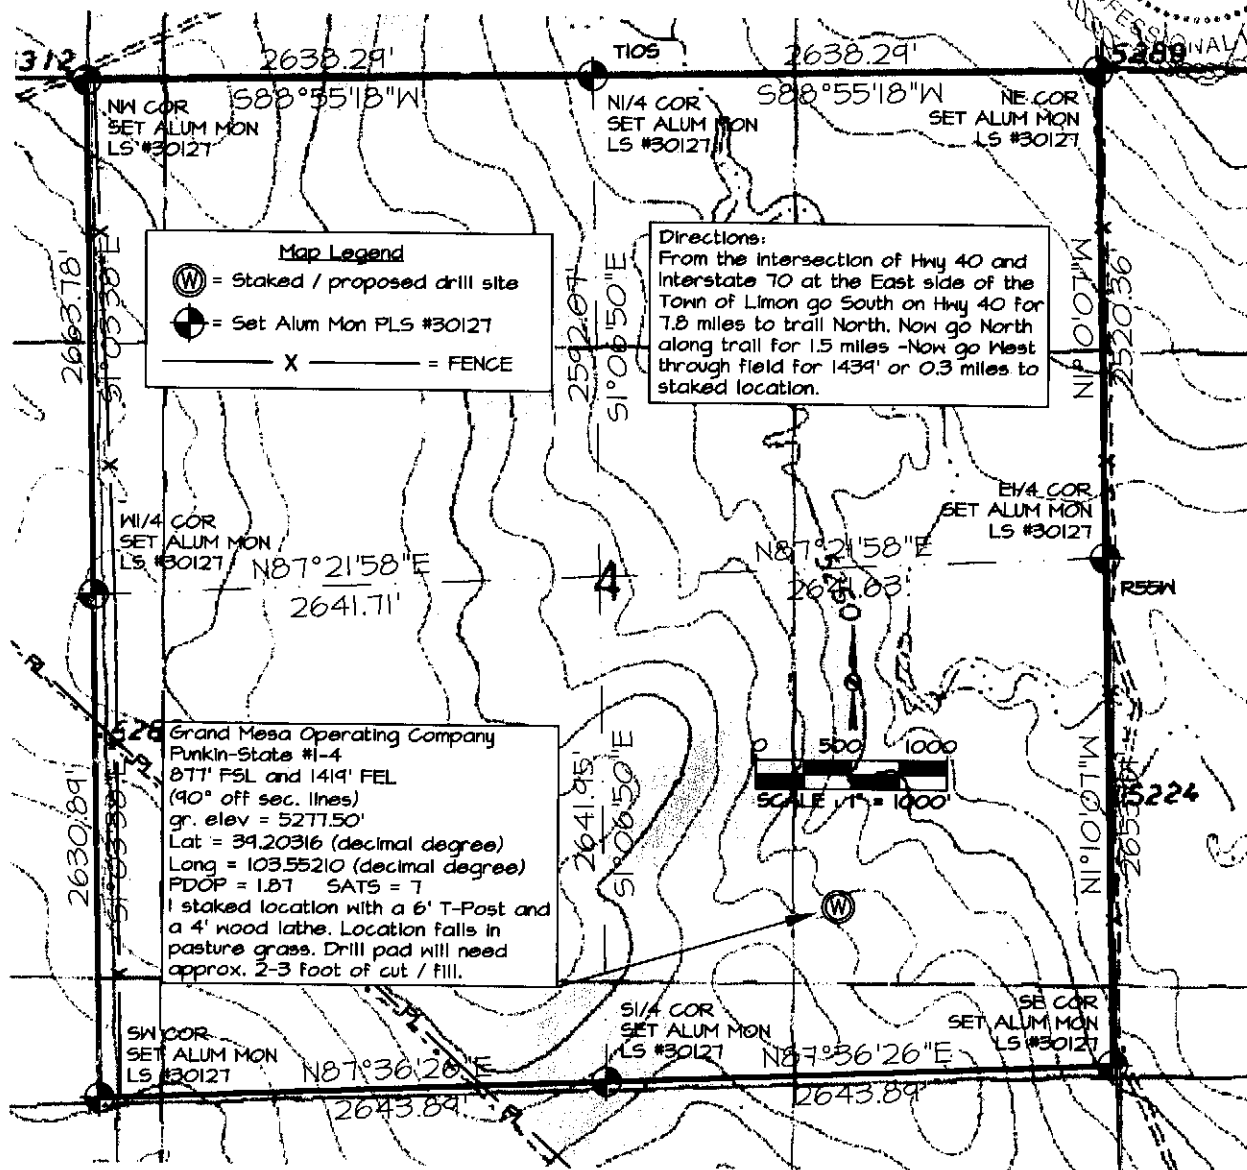 5312
2638.29'
T10S
2638.29'
5289
S88°55'18"W
S88°55'18"W
NW COR
SET ALUM MON
LS #30127
N1/4 COR
SET ALUM MON
LS #30127
NE COR
SET ALUM MON
LS #30127
Map Legend
W = Staked / proposed drill site
= Set Alum Mon PLS #30127
X = FENCE
Directions:
From the intersection of Hwy 40 and
Interstate 70 at the East side of the
Town of Limon go South on Hwy 40 for
7.8 miles to trail North. Now go North
along trail for 1.5 miles -Now go West
through field for 1439' or 0.3 miles to
staked location.
2663.78'
S1°03'38"E
2592.67'
S1°06'50"E
N1°0'01"W
2520.36'
W1/4 COR
SET ALUM MON
LS #30127
E1/4 COR
SET ALUM MON
LS #30127
N87°21'58"E
2641.71'
4
N87°21'58"E
R55W
5250
PL
PL
Grand Mesa Operating Company
Punkin-State #1-4
877' FSL and 1419' FEL
(90° off sec. lines)
gr. elev = 5277.50'
Lat = 39.20316 (decimal degree)
Long = 103.55210 (decimal degree)
PDOP = 1.87 SATS = 7
I staked location with a 6' T-Post and
a 4' wood lathe. Location falls in
pasture grass. Drill pad will need
approx. 2-3 foot of cut / fill.
2630.89'
S1°03'38"E
2641.95'
S1°06'50"E
0 500 1000
SCALE 1" = 1000'
N1°0'01"W
5224
W
SW COR
SET ALUM MON
LS #30127
S1/4 COR
SET ALUM MON
LS #30127
SE COR
SET ALUM MON
LS #30127
PL
N87°36'26"E
2643.89'
PL
N87°36'26"E
2643.89'